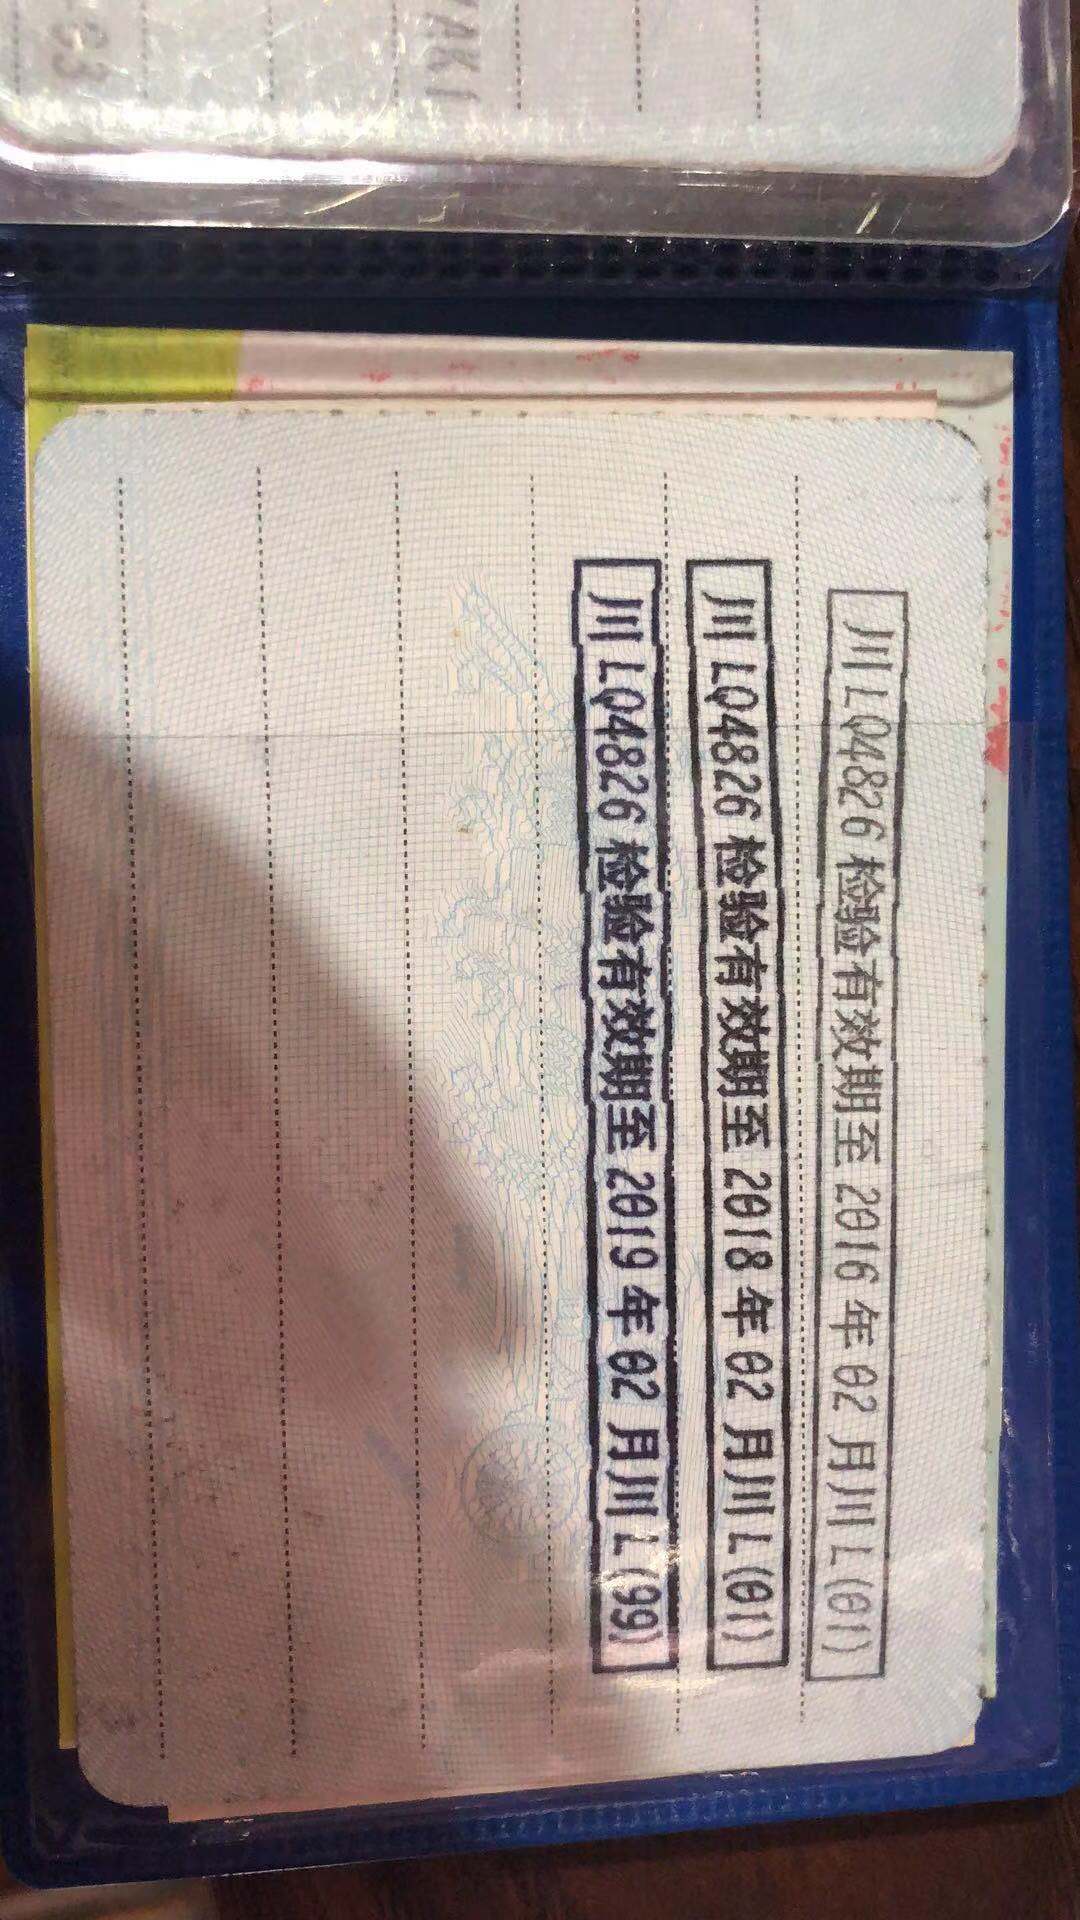 川LQ4826检验有效期至2016年02月川L(01)
川LQ4826检验有效期至2018年02月川L(01)
川LQ4826检验有效期至2019年02月川L(99)